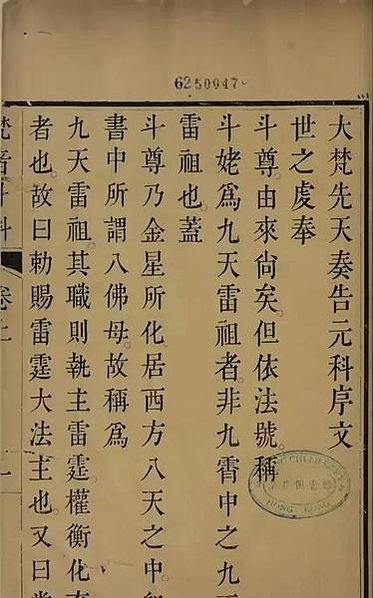 6250947
大梵先天奏告元科序文
世之虔奉
斗尊由來尚矣。但依法號。稱
斗姥爲九天雷祖者。非九霄中之九
雷祖也。蓋
斗尊乃金星所化居西方八天之中
書中所謂八佛母。故稱爲
九天雷祖。其職則執主雷霆。權衡化
者也。故曰勅賜雷霆大法主也。又曰
梵音斗科 卷上
HONG KONG